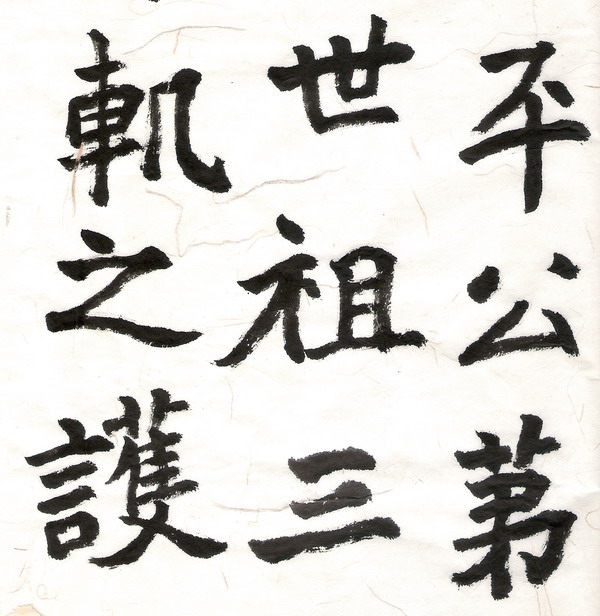 平公第
世祖三
軌之護